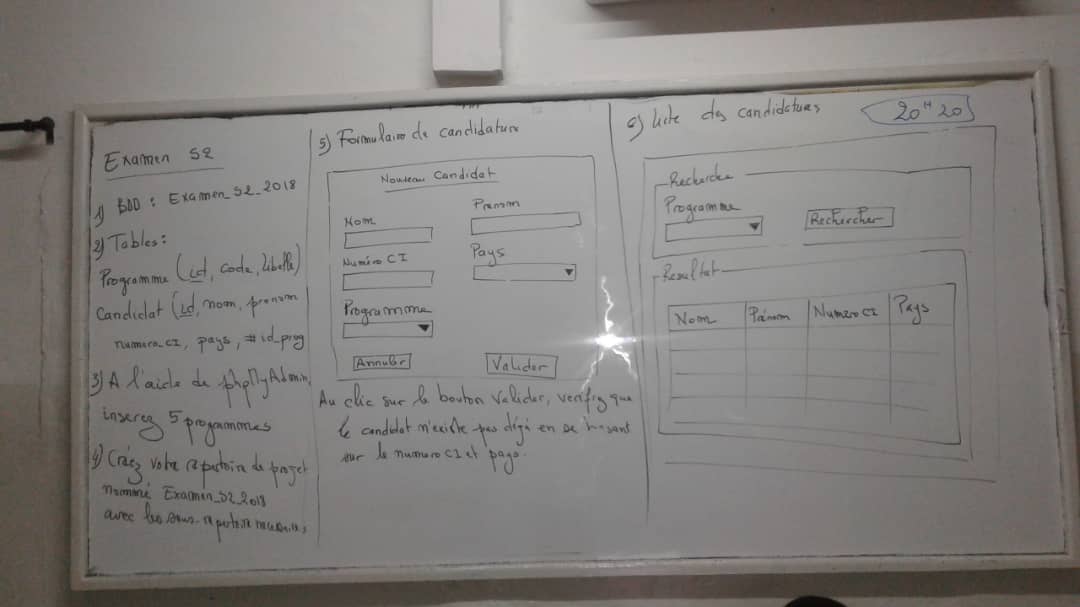 Examen S2
1) BDD : Examen_S2_2018
2) Tables :
Programme (id, code, libelle)
Candidat (id, nom, prenom
numero_CI, pays, #id_prog
3) A l'aide de phpMyAdmin,
inserez 5 programmes
4) Créez votre repertoire de projet
nommé Examen_S2_2018
avec les sous-repertoire necessaires
5) Formulaire de candidature
Nouveau Candidat
Nom
Prenom
Numéro CI
Pays
Programme
Annuler
Valider
Au clic sur le bouton Valider, verifiez que
le candidat n'existe pas déjà en se basant
sur le numero CI et pays.
6) Liste des candidatures
20H20
Recherche
Programme
Rechercher
Resultat
Nom
Prénom
Numero CI
Pays